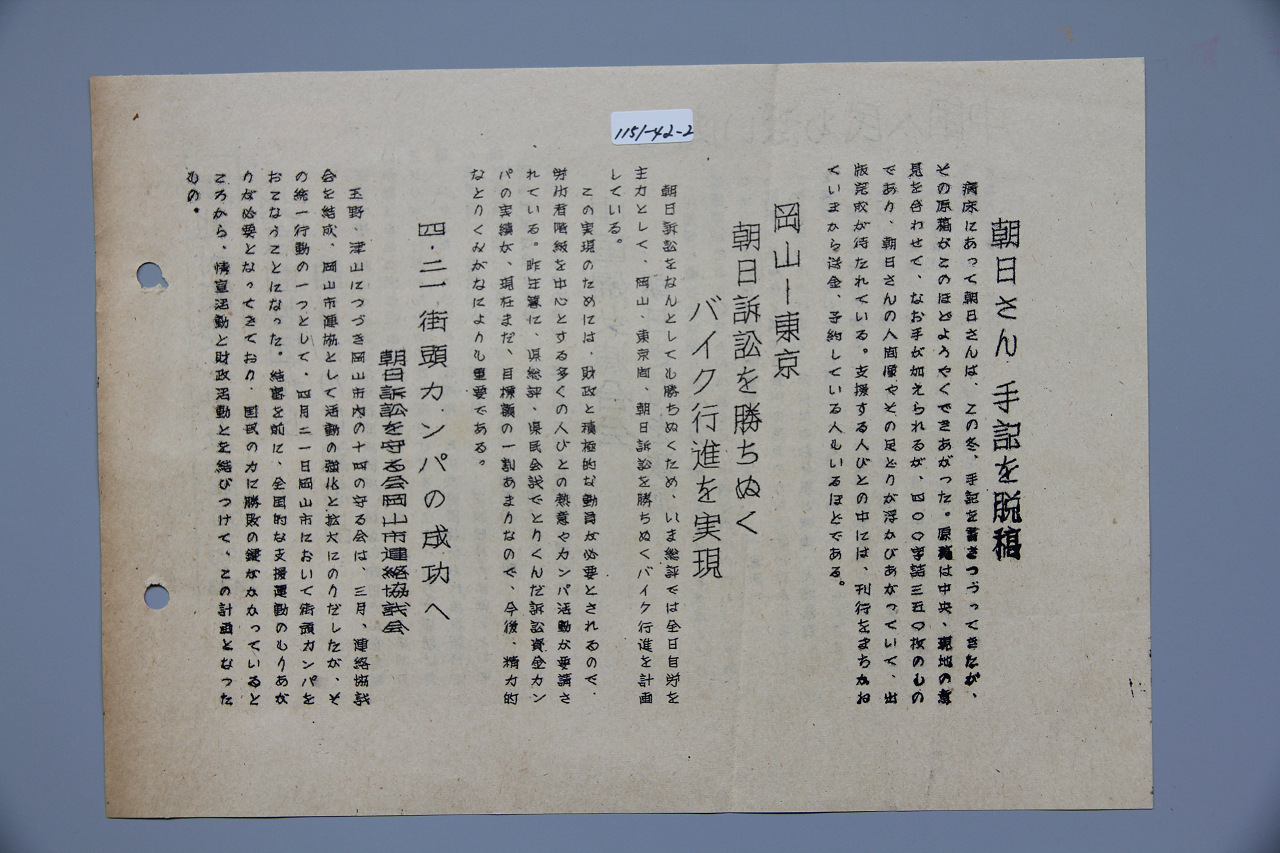 1151-42-2
朝日さん 手記を脱稿
病床にあって朝日さんは、この冬、手記を書きつづってきたが、
その原稿がこのほどようやくできあがった。原稿は中央、現地の意
見を合わせて、なお手が加えられるが、四〇〇字詰三五〇枚のもの
であり、朝日さんの人間像やその足どりが浮かびあがっていて、出
版完成が待たれている。支援する人びとの中には、刊行をまちかね
ていまから送金、予約している人もいるほどである。
岡山ー東京
朝日訴訟を勝ちぬく
バイク行進を実現
朝日訴訟をなんとしても勝ちぬくため、いま総評では全日自労を
主力として、岡山、東京間、朝日訴訟を勝ちぬくバイク行進を計画
している。
この実現のためには、財政と積極的な動員が必要とされるので、
労仂者階級を中心とする多くの人びとの熱意やカンパ活動が要請さ
れている。昨年暮に、県総評、県民会議でとりくんだ訴訟資金カン
パの実績が、現在まだ、目標額の一割あまりなので、今後、精力的
なとりくみがなによりも重要である。
四・二一街頭カンパの成功へ
朝日訴訟を守る会岡山市連絡協議会
玉野、津山につづき岡山市内の十四の守る会は、三月、連絡協議
会を結成、岡山市連協として活動の強化と拡大にのりだしたが、そ
の統一行動の一つとして、四月二一日岡山市において街頭カンパを
おこなうことになった。結審を前に、全国的な支援運動のもりあが
りが必要となってきており、国民の力に勝敗の鍵がかかっていると
ころから、情宣活動と財政活動とを結びつけて、この計画となった
もの。